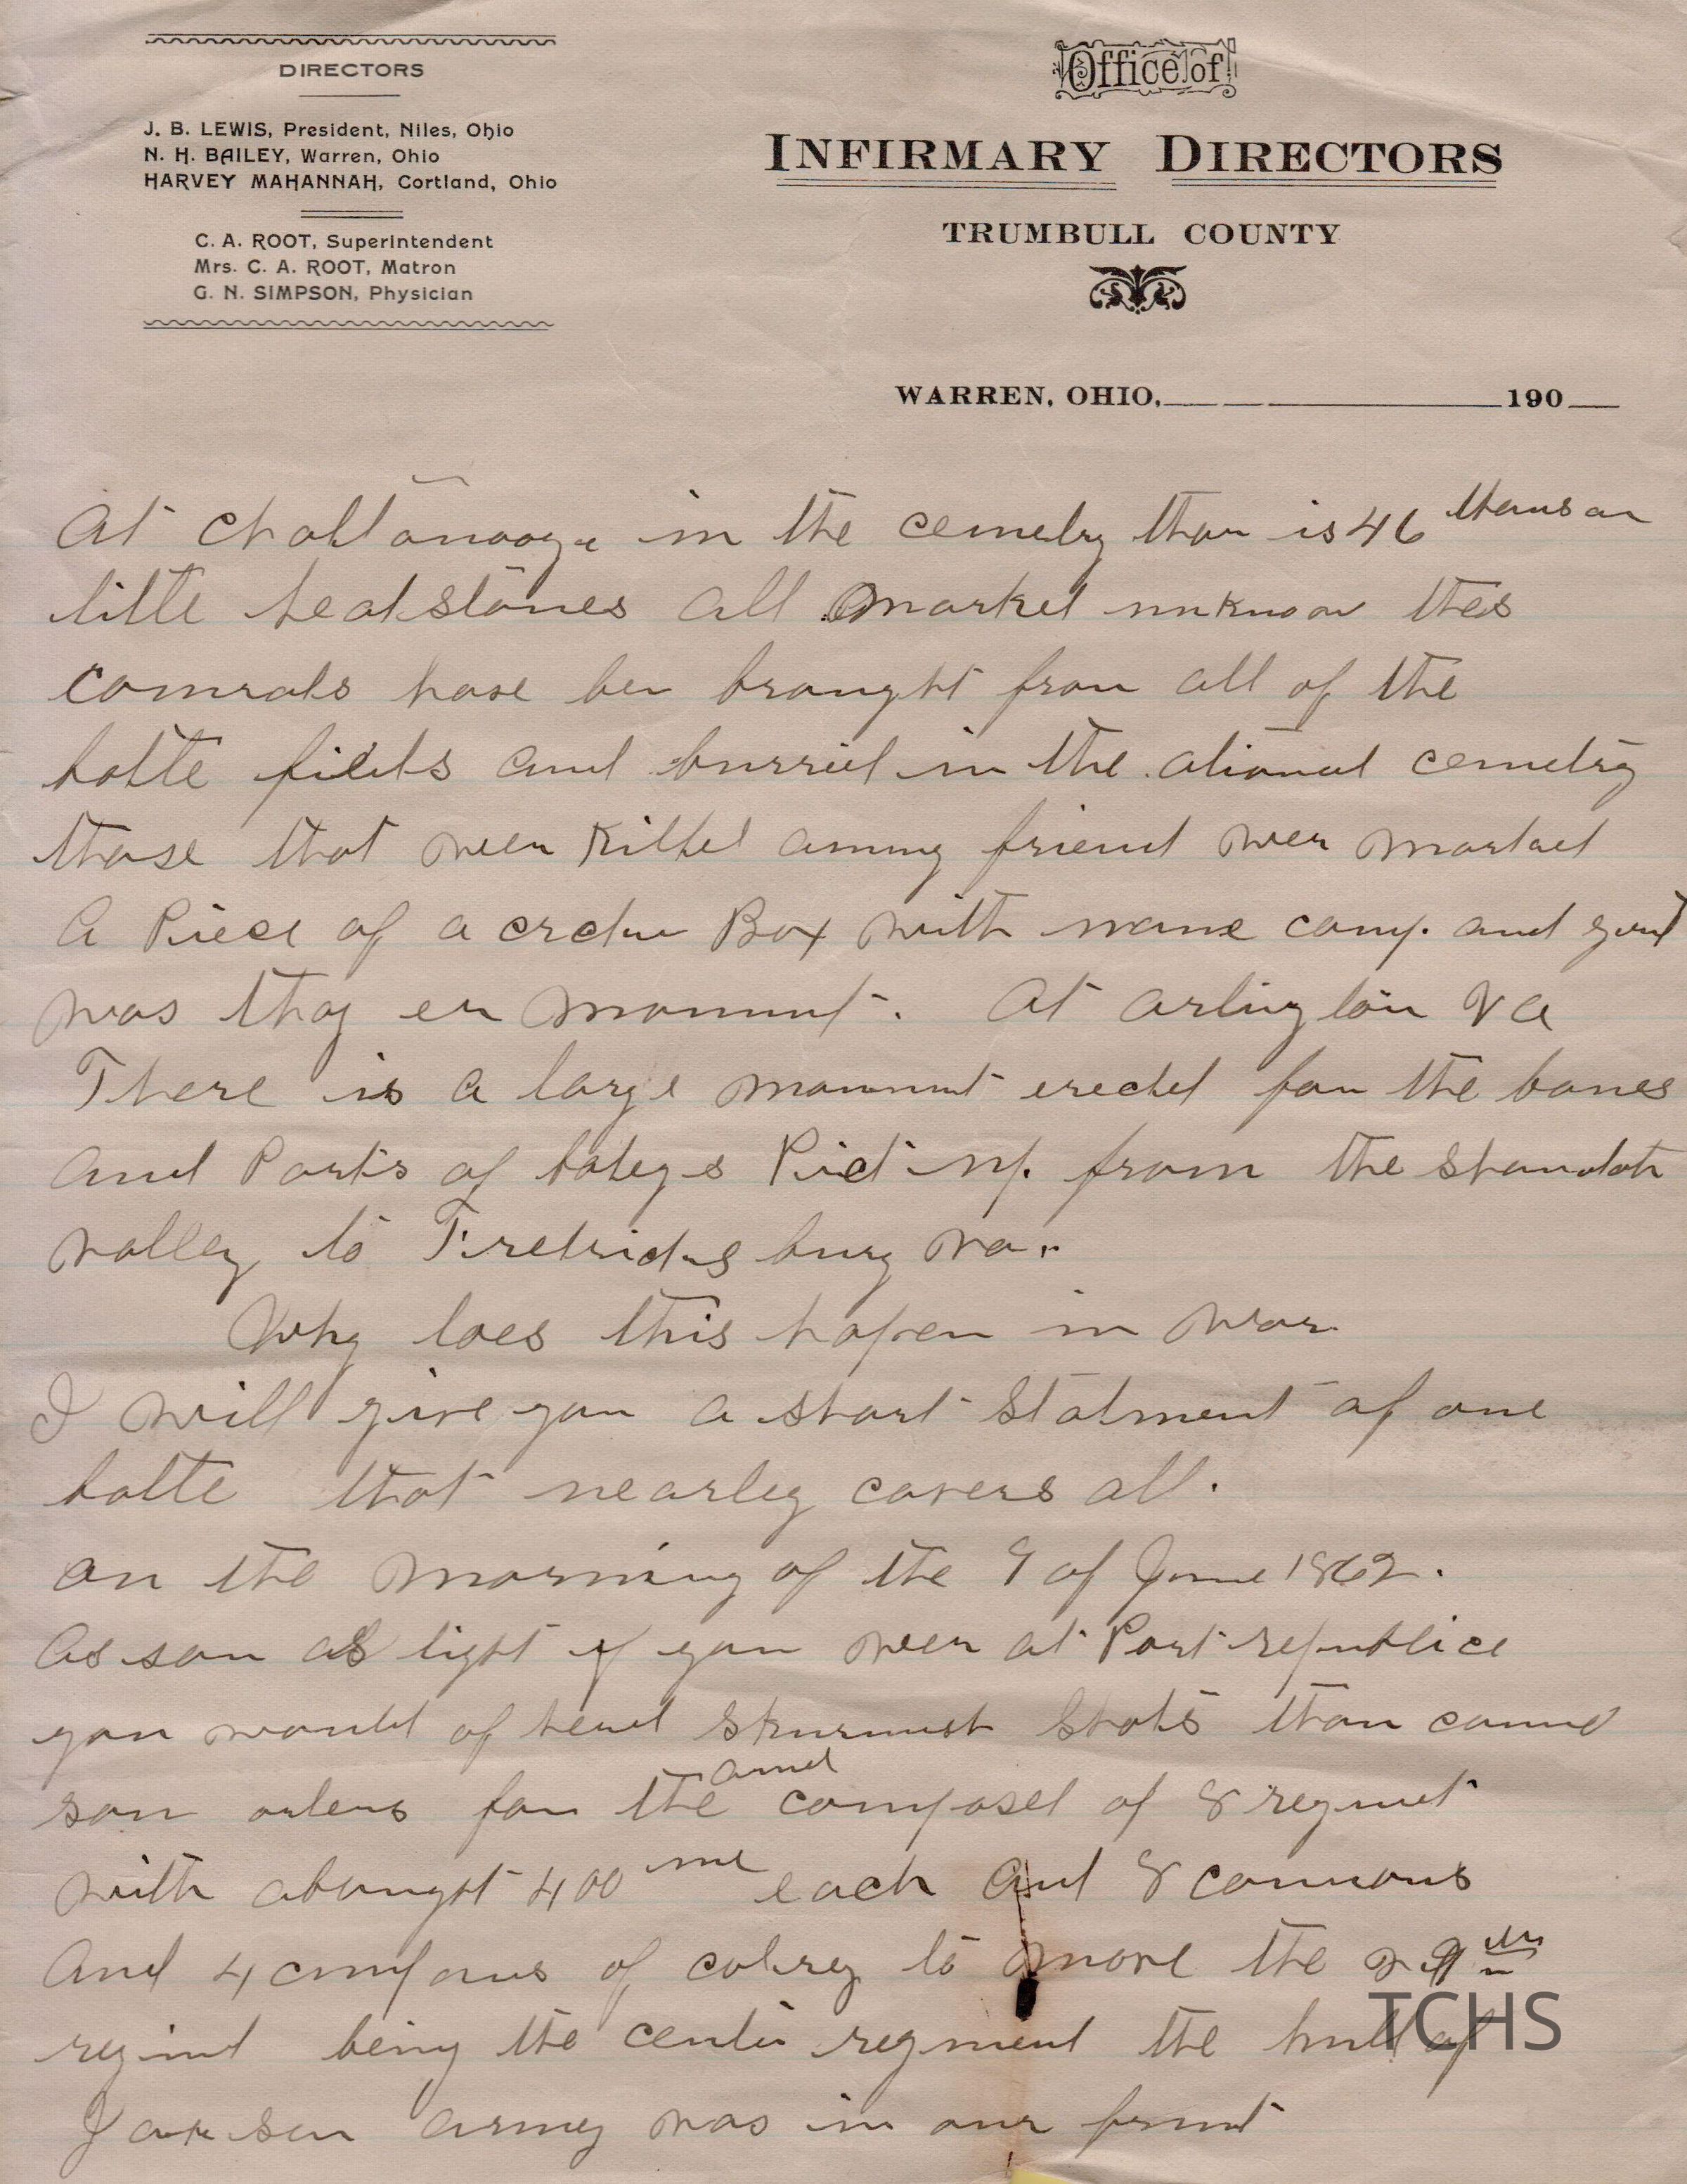 DIRECTORS
J. B. LEWIS, President, Niles, Ohio
N. H. BAILEY, Warren, Ohio
HARVEY MAHANNAH, Cortland, Ohio
C. A. ROOT, Superintendent
Mrs. C. A. ROOT, Matron
G. N. SIMPSON, Physician
Office of
INFIRMARY DIRECTORS
TRUMBULL COUNTY
WARREN, OHIO, 190
At Chattanooga in the cemetry thar is 46 thousan
little headstones all marked unknow thes
comrads have ben brought from all of the
battle fields and burried in the ational cemetry
those that weer killed among friend wer marked
A Piece of a Box with name comp. and
was thay er monument. At Arlington Va
There is a large monument erected for the bones
and Parts of bodeys Pict up from the
valley to Fredricksburg Va.
Why does this hapen in war
I will give you a short statment of one
battle that nearley covers all.
on the morning of the 9 of June 1862.
As soon as light if you weer at Port republice
you would of heard shots than
soon orders for the and composed of 8 regment
with abought 400 me each and 8 cannons
and 4 of to move the 29th
regiment being the center regment the hull of
Jackson army was in our front
TCHS